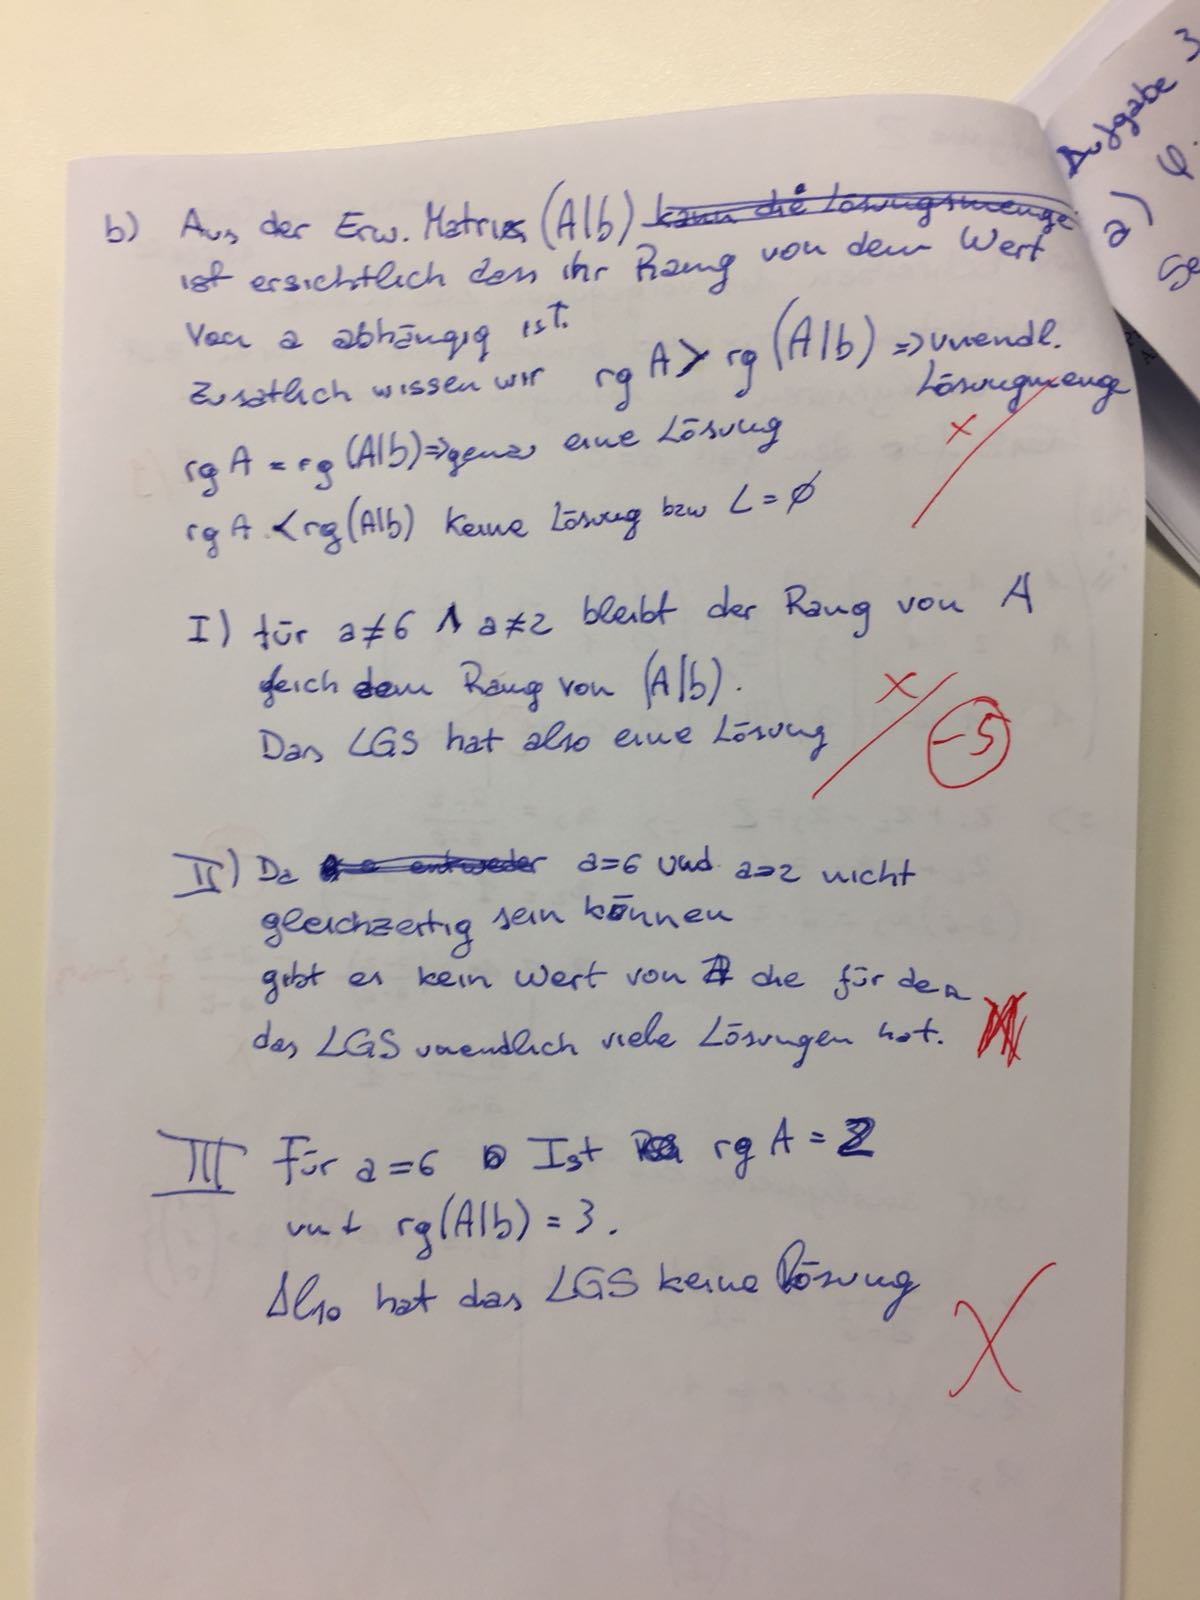 b) Aus der Erw. Matrix (A|b) kann die Lösungsmenge
ist ersichtlich dass ihr Rang von dem Wert
von a abhängig ist.
Zusätlich wissen wir rg A > rg (A|b) => unendl.
Lösungmenge
rg A = rg (A|b) => genau eine Lösung
rg A < rg (A|b) keine Lösung bzw L = ∅
I) für a≠6 ∧ a≠2 bleibt der Rang von A
gleich dem Rang von (A|b).
Das LGS hat also eine Lösung
-5
II) Da entweder a=6 und a=2 nicht
gleichzeitig sein können
gibt es kein Wert von A die für den
das LGS unendlich viele Lösungen hat.
III Für a=6 Ist rg A = 2
und rg (A|b) = 3.
Also hat das LGS keine Lösung
Aufgabe 3
a) φ